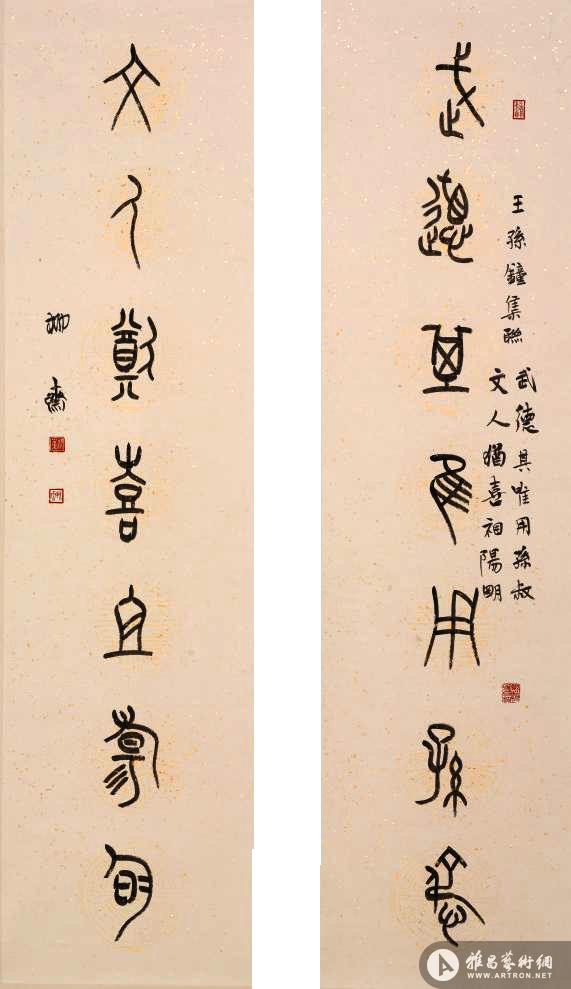 武德其唯用孫叔
王孫鐘集聯
武德其唯用孫叔
文人猶喜祖陽明
文人猶喜祖陽明
雅昌藝術網
WWW.ARTRON.NET